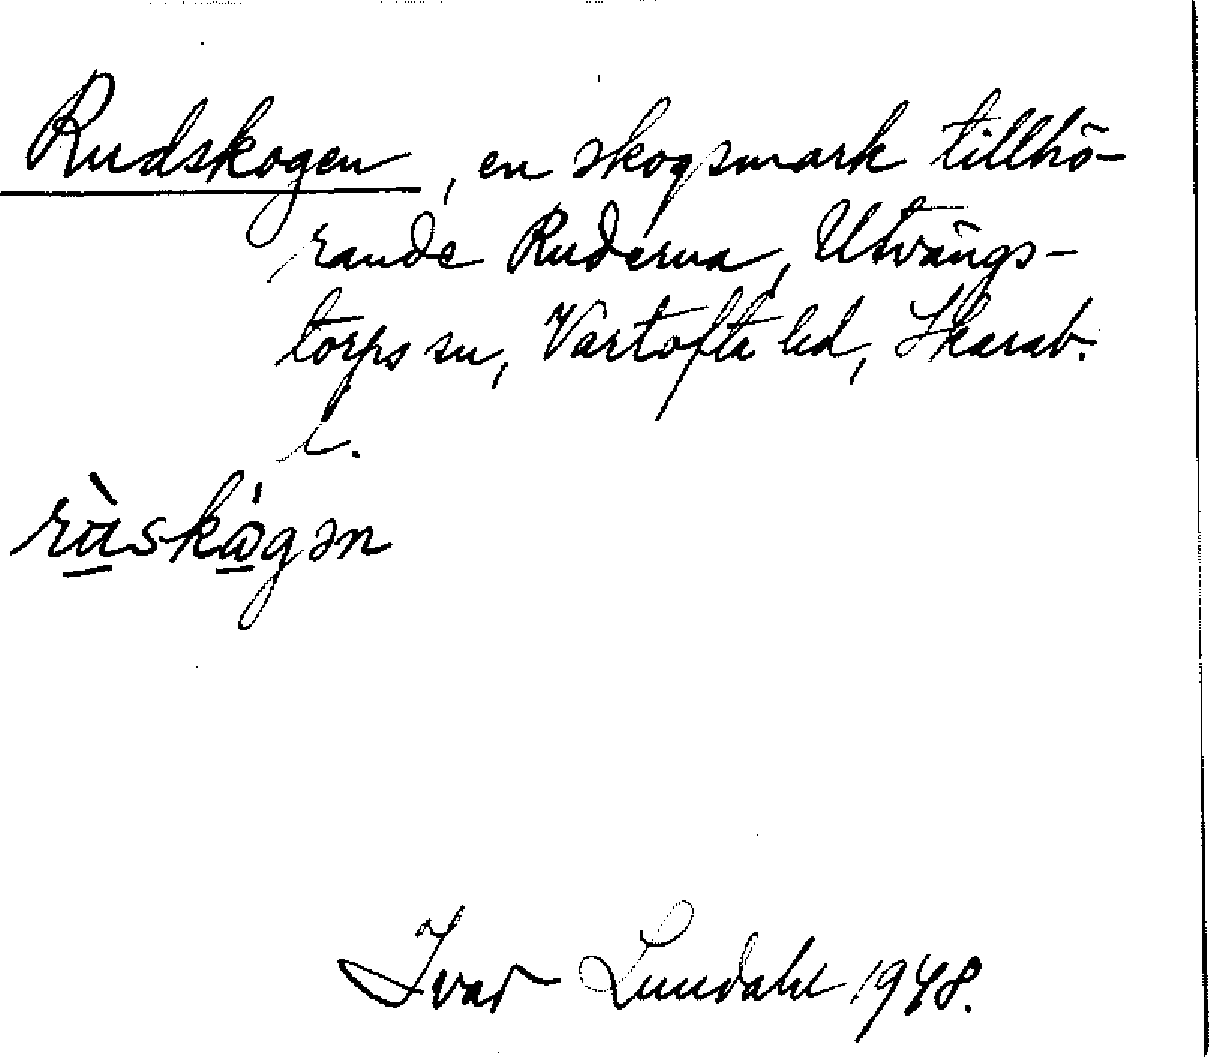 Rudskogen, en skogsmark tillhö-
rande Ruderna, Utvängs-
torps sn, Vartofta hd, Skarab.
l.
rùskògən
Ivar Lundahl 1948.